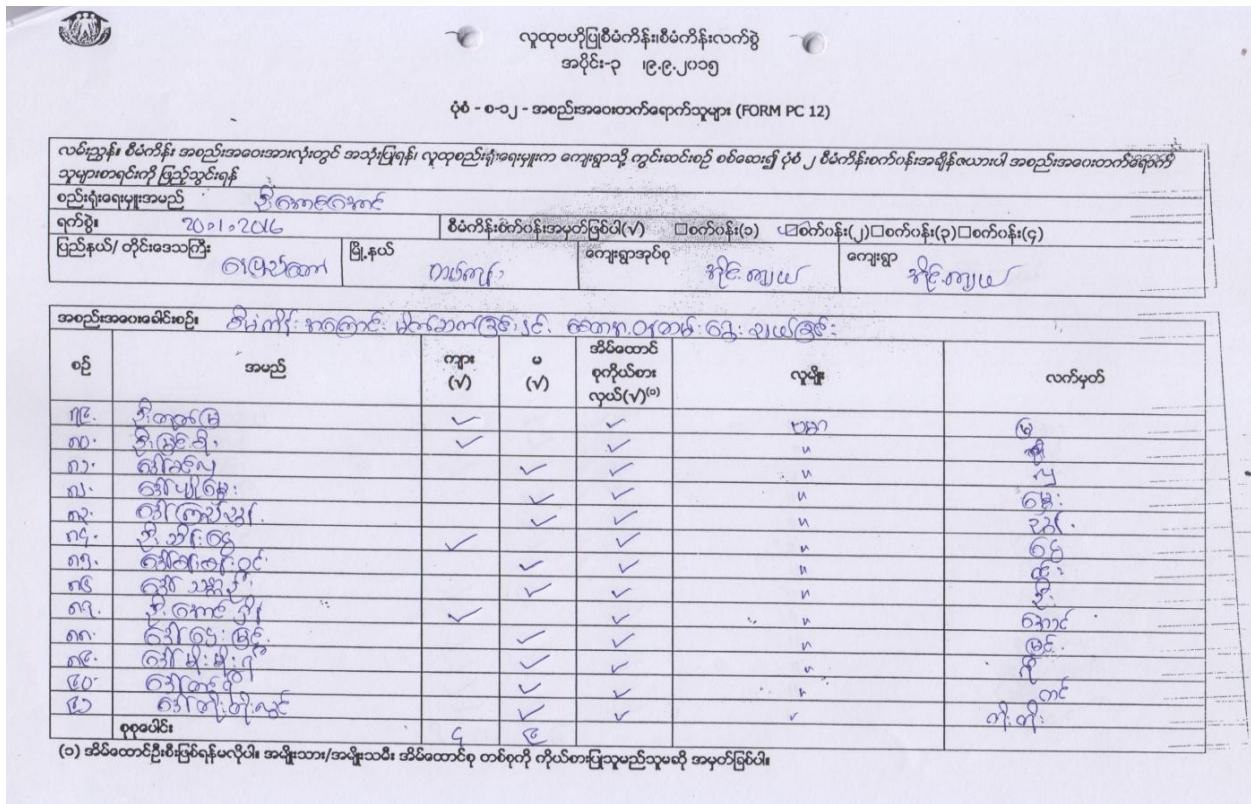 လူထုဗဟိုပြုစီမံကိန်း၊စီမံကိန်းလက်စွဲ
အပိုင်း-၃ ၊၉.၉.၂၀၁၅
ပုံစံ - စ-၁၂ - အစည်းအဝေးတက်ရောက်သူများ (FORM PC 12)
လမ်းညွှန်။ စီမံကိန်း အစည်းအဝေးအားလုံးတွင် အသုံးပြုရန်၊ လူထုစည်းရုံးရေးမှူးက ကျေးရွာသို့ ကွင်းဆင်းစဉ် စစ်ဆေး၍ ပုံစံ ၂ စီမံကိန်းစက်ပန်းအချိန်ဇယားပါ အစည်းအဝေးတက်ရောက်
သူများစာရင်းကို ဖြည့်သွင်းရန်
စည်းရုံးရေးမှူးအမည် ဦးအောင်အောင်
ရက်စွဲ။ 20.1.2016 စီမံကိန်းစက်ပန်းအမှတ်ဖြစ်ပါ(√) □စက်ပန်း(၁) ☑စက်ပန်း(၂)□စက်ပန်း(၃)□စက်ပန်း(၄)
ပြည်နယ်/ တိုင်းဒေသကြီး နေပြည်တော် မြို့နယ် ကျေးရွာအုပ်စု ကျေးရွာ
အစည်းအဝေးခေါင်းစဉ်။ စီမံကိန်းအကြောင်း မိတ်ဆက်ခြင်းနှင့် စေတနာ့ဝန်ထမ်း ရွေးချယ်ခြင်း
စဉ် အမည် ကျား (√) မ (√) အိမ်ထောင်စုကိုယ်စားလှယ်(√)⁽⁰⁾ လူမျိုး လက်မှတ်
၇၉. ✓ ✓ ဗမာ မြ
၈၀. ဦးမြင့်စိုး ✓ ✓ "
၈၁. ✓ ✓ " လှ
၈၂. ဒေါ်ပျို့မွှေး ✓ ✓ " မွှေး
၈၃. ဒေါ်ကြည်ညွန့် ✓ ✓ " ညွန့်
၈၄. ဦးသိန်းငွေ ✓ ✓ " ငွေ
၈၅. ✓ ✓ "
၈၆ ✓ ✓ "
၈၇. ဦးအောင်ညွန့် ✓ ✓ " အောင်
၈၈. ဒေါ်ဌေးမြင့် ✓ ✓ " မြင့်
၈၉. ✓ ✓ "
၉၀. ✓ ✓ " တင်
၉၁ ဒေါ်တိုးတိုးလွင် ✓ ✓ " တိုးတိုး
စုစုပေါင်း ၄ ၉
(၁) အိမ်ထောင်ဦးစီးဖြစ်ရန်မလိုပါ။ အမျိုးသား/အမျိုးသမီး အိမ်ထောင်စု တစ်စုကို ကိုယ်စားပြုသူမည်သူမဆို အမှတ်ခြစ်ပါ။